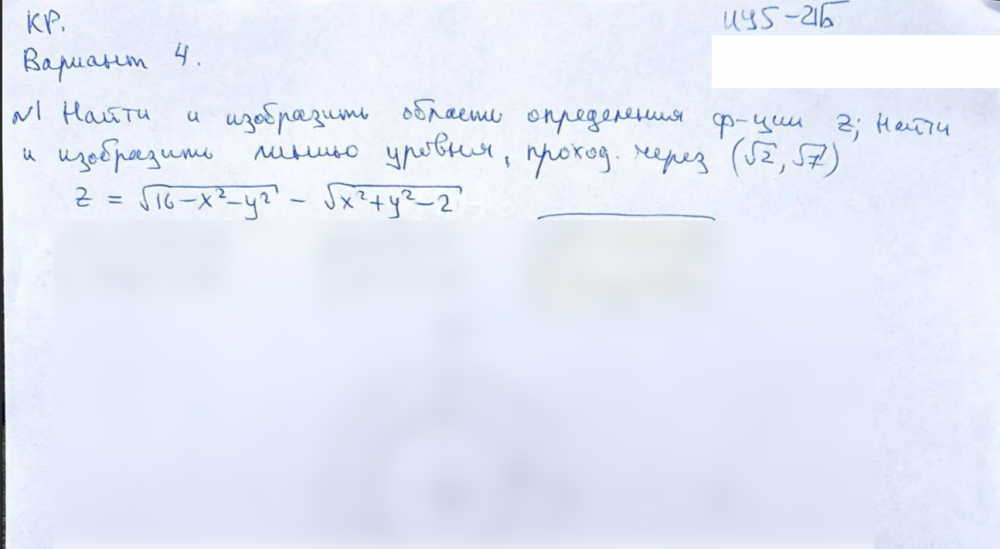 КР.
ИУ5-21Б
Вариант 4.
№1 Найти и изобразить область определения ф-ции z; Найти
и изобразить линию уровня, проход. через (√2, √7)
z = √16-x²-y² - √x²+y²-2